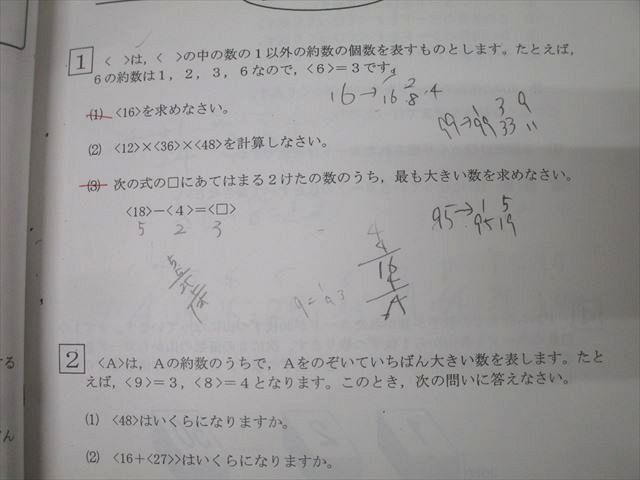 1 < >は，< >の中の数の１以外の約数の個数を表すものとします。たとえば，
６の約数は１，２，３，６なので，<６>＝３です。
16→ 16 2 8 4
(1) <16>を求めなさい。
99→ 1 99 3 33 9 11
(2) <12>×<36>×<48>を計算しなさい。
(3) 次の式の□にあてはまる２けたの数のうち，最も大きい数を求めなさい。
<18>－<４>＝<□>
5 2 3
95→ 1 95 5 19
4
16
9＝1 9 3
2 <A>は，Aの約数のうちで，Aをのぞいていちばん大きい数を表します。たと
えば，<９>＝３，<８>＝４となります。このとき，次の問いに答えなさい。
(1) <48>はいくらになりますか。
(2) <16＋<27>>はいくらになりますか。
する